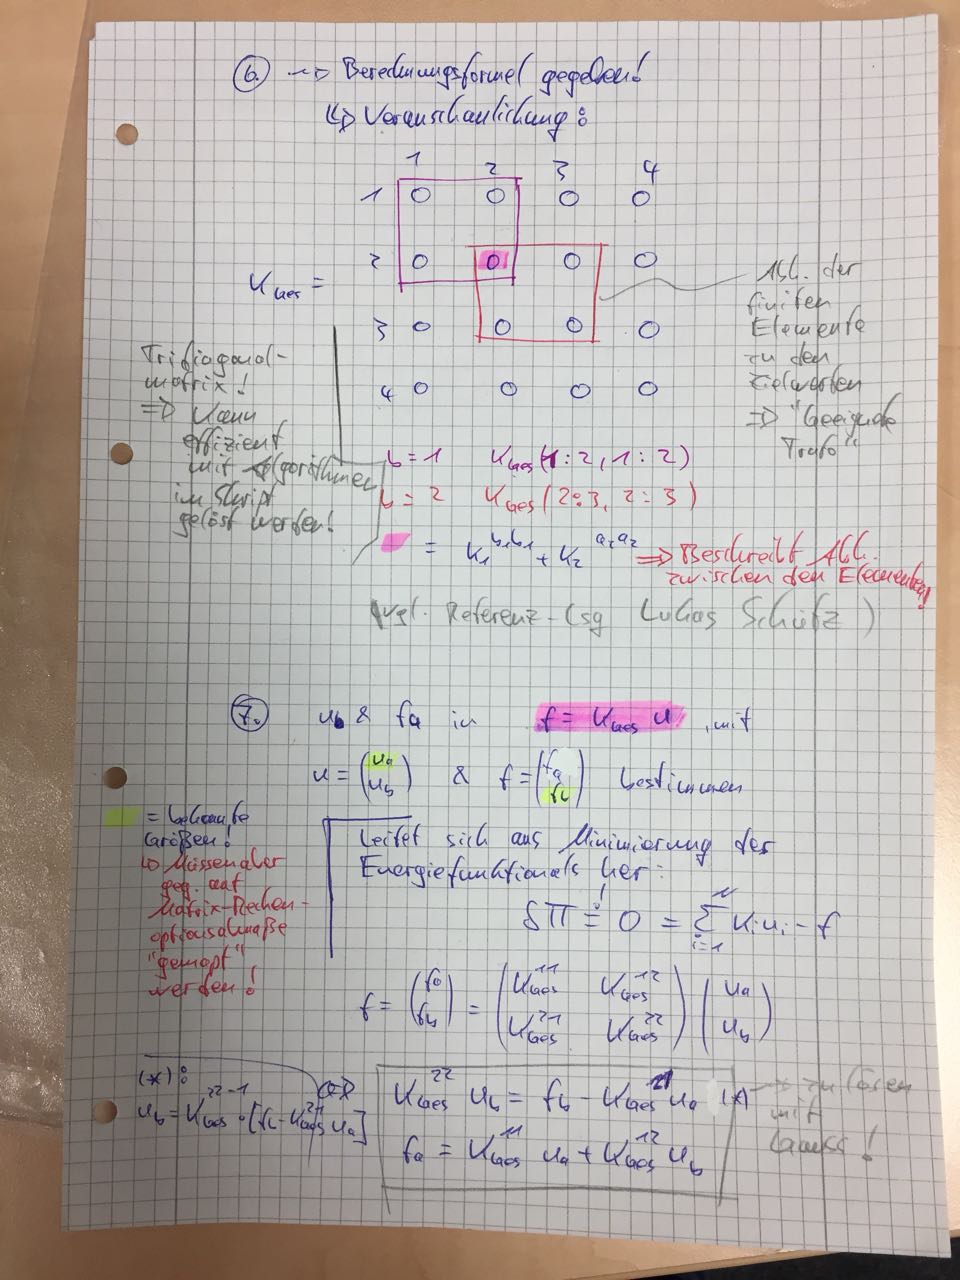 6. → Berechnungsformel gegeben!
↳ Veranschaulichung:
1 2 3 4
1 0 0 0 0
2 0 0 0 0
K_Ges =
3 0 0 0 0
4 0 0 0 0
Abh. der
finiten
Elemente
zu den
Zielwerten
⇒ "Geeignete
Trafo"
Tridiagonal-
matrix!
⇒ Kann
effizient
mit Algorithmen
im Skript
gelöst werden!
b=1 K_Ges(1:2, 1:2)
b=2 K_Ges(2:3, 2:3)
= K_1^{b_1b_1} + K_2^{a_2a_2} ⇒ Beschreibt Abh.
zwischen den Elementen!
(vgl. Referenz-Lsg Lukas Schütz)
7. u_b & f_a in f = K_Ges u , mit
u = (u_a u_b) & f = (f_a f_b) bestimmen
= bekannte
Größen!
↳ Müssen aber
geg. auf
Matrix-Rechen-
"gemapt"
werden!
Leitet sich aus Minimierung der
Energiefunktionals her:
δΠ =! 0 = Σ_{i=1}^{n} K_i u_i - f
f = (f_a f_b) = (K_Ges^{11} K_Ges^{12} K_Ges^{21} K_Ges^{22}) (u_a u_b)
(*):
u_b = K_Ges^{22 -1} · [f_b - K_Ges^{21} u_a]
⇔
K_Ges^{22} u_b = f_b - K_Ges^{21} u_a (*)
f_a = K_Ges^{11} u_a + K_Ges^{12} u_b
→ zu lösen
mit
Gauss!